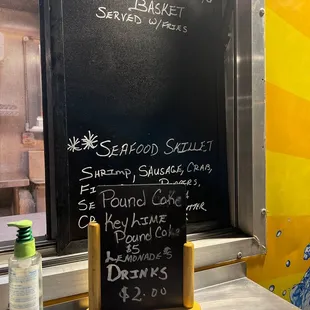 BASKET
SERVED W/FRIES
**SEAFOOD SKILLET
SHRIMP, SAUSAGE, CRAB,
Pound Cake
Key Lime
Pound Cake
$5
LEMONADE $
DRINKS
$2.00